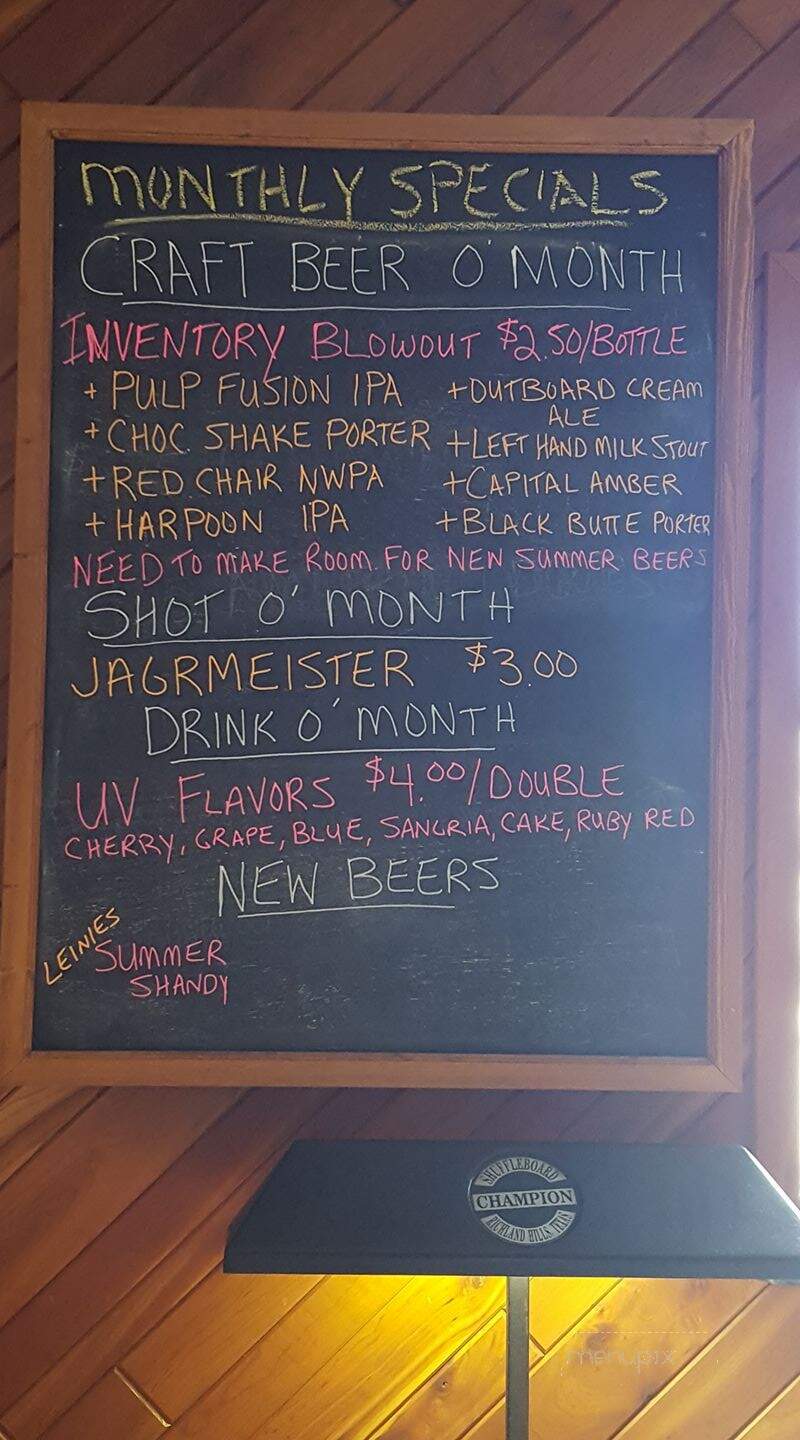 MONTHLY SPECIALS
CRAFT BEER O' MONTH
INVENTORY BLOWOUT $2.50/BOTTLE
+ PULP FUSION IPA
+ CHOC. SHAKE PORTER
+ RED CHAIR NWPA
+ HARPOON IPA
+ OUTBOARD CREAM
ALE
+ LEFT HAND MILK STOUT
+ CAPITAL AMBER
+ BLACK BUTTE PORTER
NEED TO MAKE ROOM FOR NEW SUMMER BEERS
SHOT O' MONTH
JAGRMEISTER $3.00
DRINK O' MONTH
UV FLAVORS $4.00/DOUBLE
CHERRY, GRAPE, BLUE, SANGRIA, CAKE, RUBY RED
NEW BEERS
LEINIES
SUMMER
SHANDY
SHUFFLEBOARD
CHAMPION
RICHLAND HILLS, TEXAS
menupix